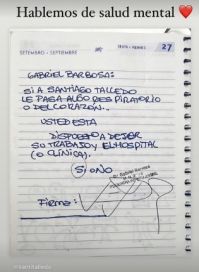 Hablemos de salud mental ❤️
SETEMBRO - SEPTIEMBRE
27
GABRIEL BARBOSA:
SI A SANTIAGO TALLEDO
LE PASA ALGO RESPIRATORIO
O DEL CORAZON..
USTED ESTA
DISPUESTO A DEJAR
SU TRABAJO Y EL HOSPITAL
(O CLINICA).
SI O NO
Firma: